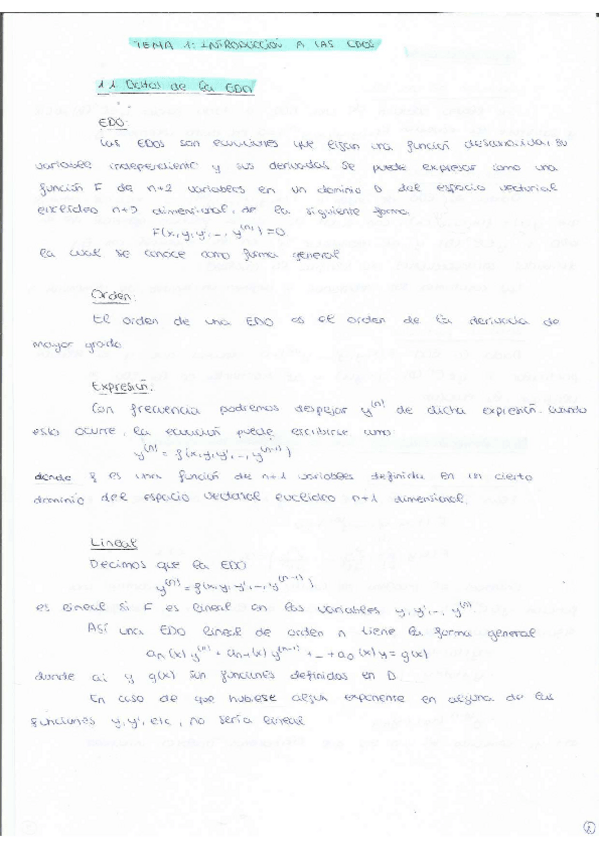 TEMA 1: INTRODUCCIÓN A LAS EDOS
1.1 Datos de la EDO
EDO:
Las EDOs son ecuaciones que ligan una función desconocida, su
variable independiente y sus derivadas. Se puede expresar como una
función F de n+2 variables en un dominio D del espacio vectorial
euclídeo n+2 dimensional, de la siguiente forma:
F(x, y, y', ..., y⁽ⁿ⁾) = 0
la cual se conoce como forma general
Orden:
El orden de una EDO es el orden de la derivada de
mayor grado
Expresión:
Con frecuencia podremos despejar y⁽ⁿ⁾ de dicha expresión. Cuando
esto ocurre, la ecuación puede escribirse como:
y⁽ⁿ⁾ = f(x, y, y', ..., y⁽ⁿ⁻¹⁾)
donde f es una función de n+1 variables definida en un cierto
dominio del espacio vectorial euclídeo n+1 dimensional.
Lineal
Decimos que la EDO
y⁽ⁿ⁾ = f(x, y, y', ..., y⁽ⁿ⁻¹⁾)
es lineal si F es lineal en las variables y, y', ..., y⁽ⁿ⁾
Así una EDO lineal de orden n tiene la forma general
aₙ(x) y⁽ⁿ⁾ + aₙ₋₁(x) y⁽ⁿ⁻¹⁾ + ... + a₀(x) y = g(x)
donde ai y g(x) son funciones definidas en D
En caso de que hubiese algún exponente en alguna de las
funciones y, y', etc, no sería lineal